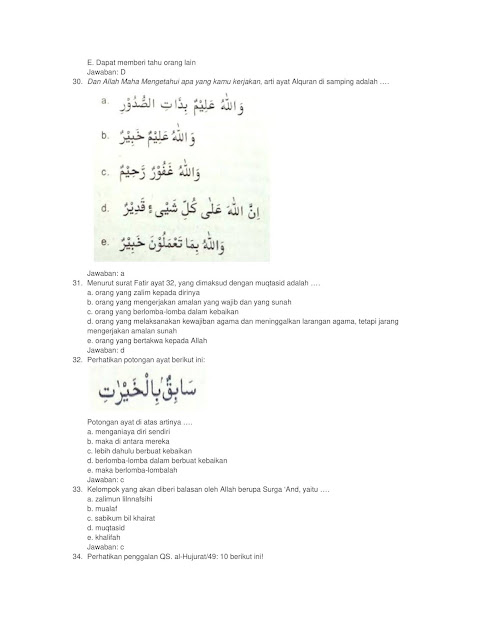 E. Dapat memberi tahu orang lain
Jawaban: D
30. Dan Allah Maha Mengetahui apa yang kamu kerjakan, arti ayat Alquran di samping adalah ….
a. وَاللّٰهُ عَلِيْمٌ بِذَاتِ الصُّدُوْرِ
b. وَاللّٰهُ عَلِيْمٌ خَبِيْرٌ
c. وَاللّٰهُ غَفُوْرٌ رَّحِيْمٌ
d. اِنَّ اللّٰهَ عَلٰى كُلِّ شَيْىءٍ قَدِيْرٌ
e. وَاللّٰهُ بِمَا تَعْمَلُوْنَ خَبِيْرٌ
Jawaban: a
31. Menurut surat Fatir ayat 32, yang dimaksud dengan muqtasid adalah ….
a. orang yang zalim kepada dirinya
b. orang yang mengerjakan amalan yang wajib dan yang sunah
c. orang yang berlomba-lomba dalam kebaikan
d. orang yang melaksanakan kewajiban agama dan meninggalkan larangan agama, tetapi jarang
mengerjakan amalan sunah
e. orang yang bertakwa kepada Allah
Jawaban: d
32. Perhatikan potongan ayat berikut ini:
سَابِقٌ بِالْخَيْرٰتِ
Potongan ayat di atas artinya…..
a. menganiaya diri sendiri
b. maka di antara mereka
c. lebih dahulu berbuat kebaikan
d. berlomba-lomba dalam berbuat kebaikan
e. maka berlomba-lombalah
Jawaban: c
33. Kelompok yang akan diberi balasan oleh Allah berupa Surga 'And, yaitu ….
a. zalimun lilnnafsihi
b. mualaf
c. sabikum bil khairat
d. muqtasid
e. khalifah
Jawaban: c
34. Perhatikan penggalan QS. al-Hujurat/49: 10 berikut ini!